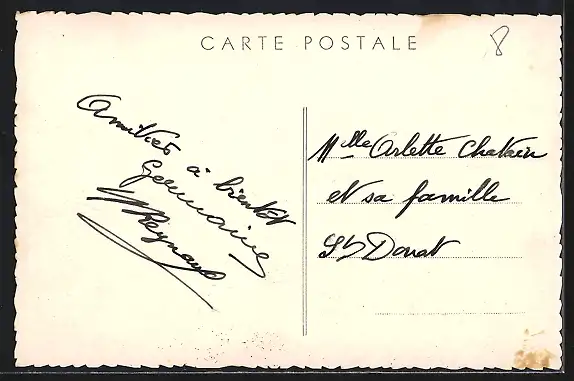 CARTE POSTALE
8
Amitiés à bientôt
Germaine
Reynaud
Mlle Arlette Chatain
et sa famille
St Donat